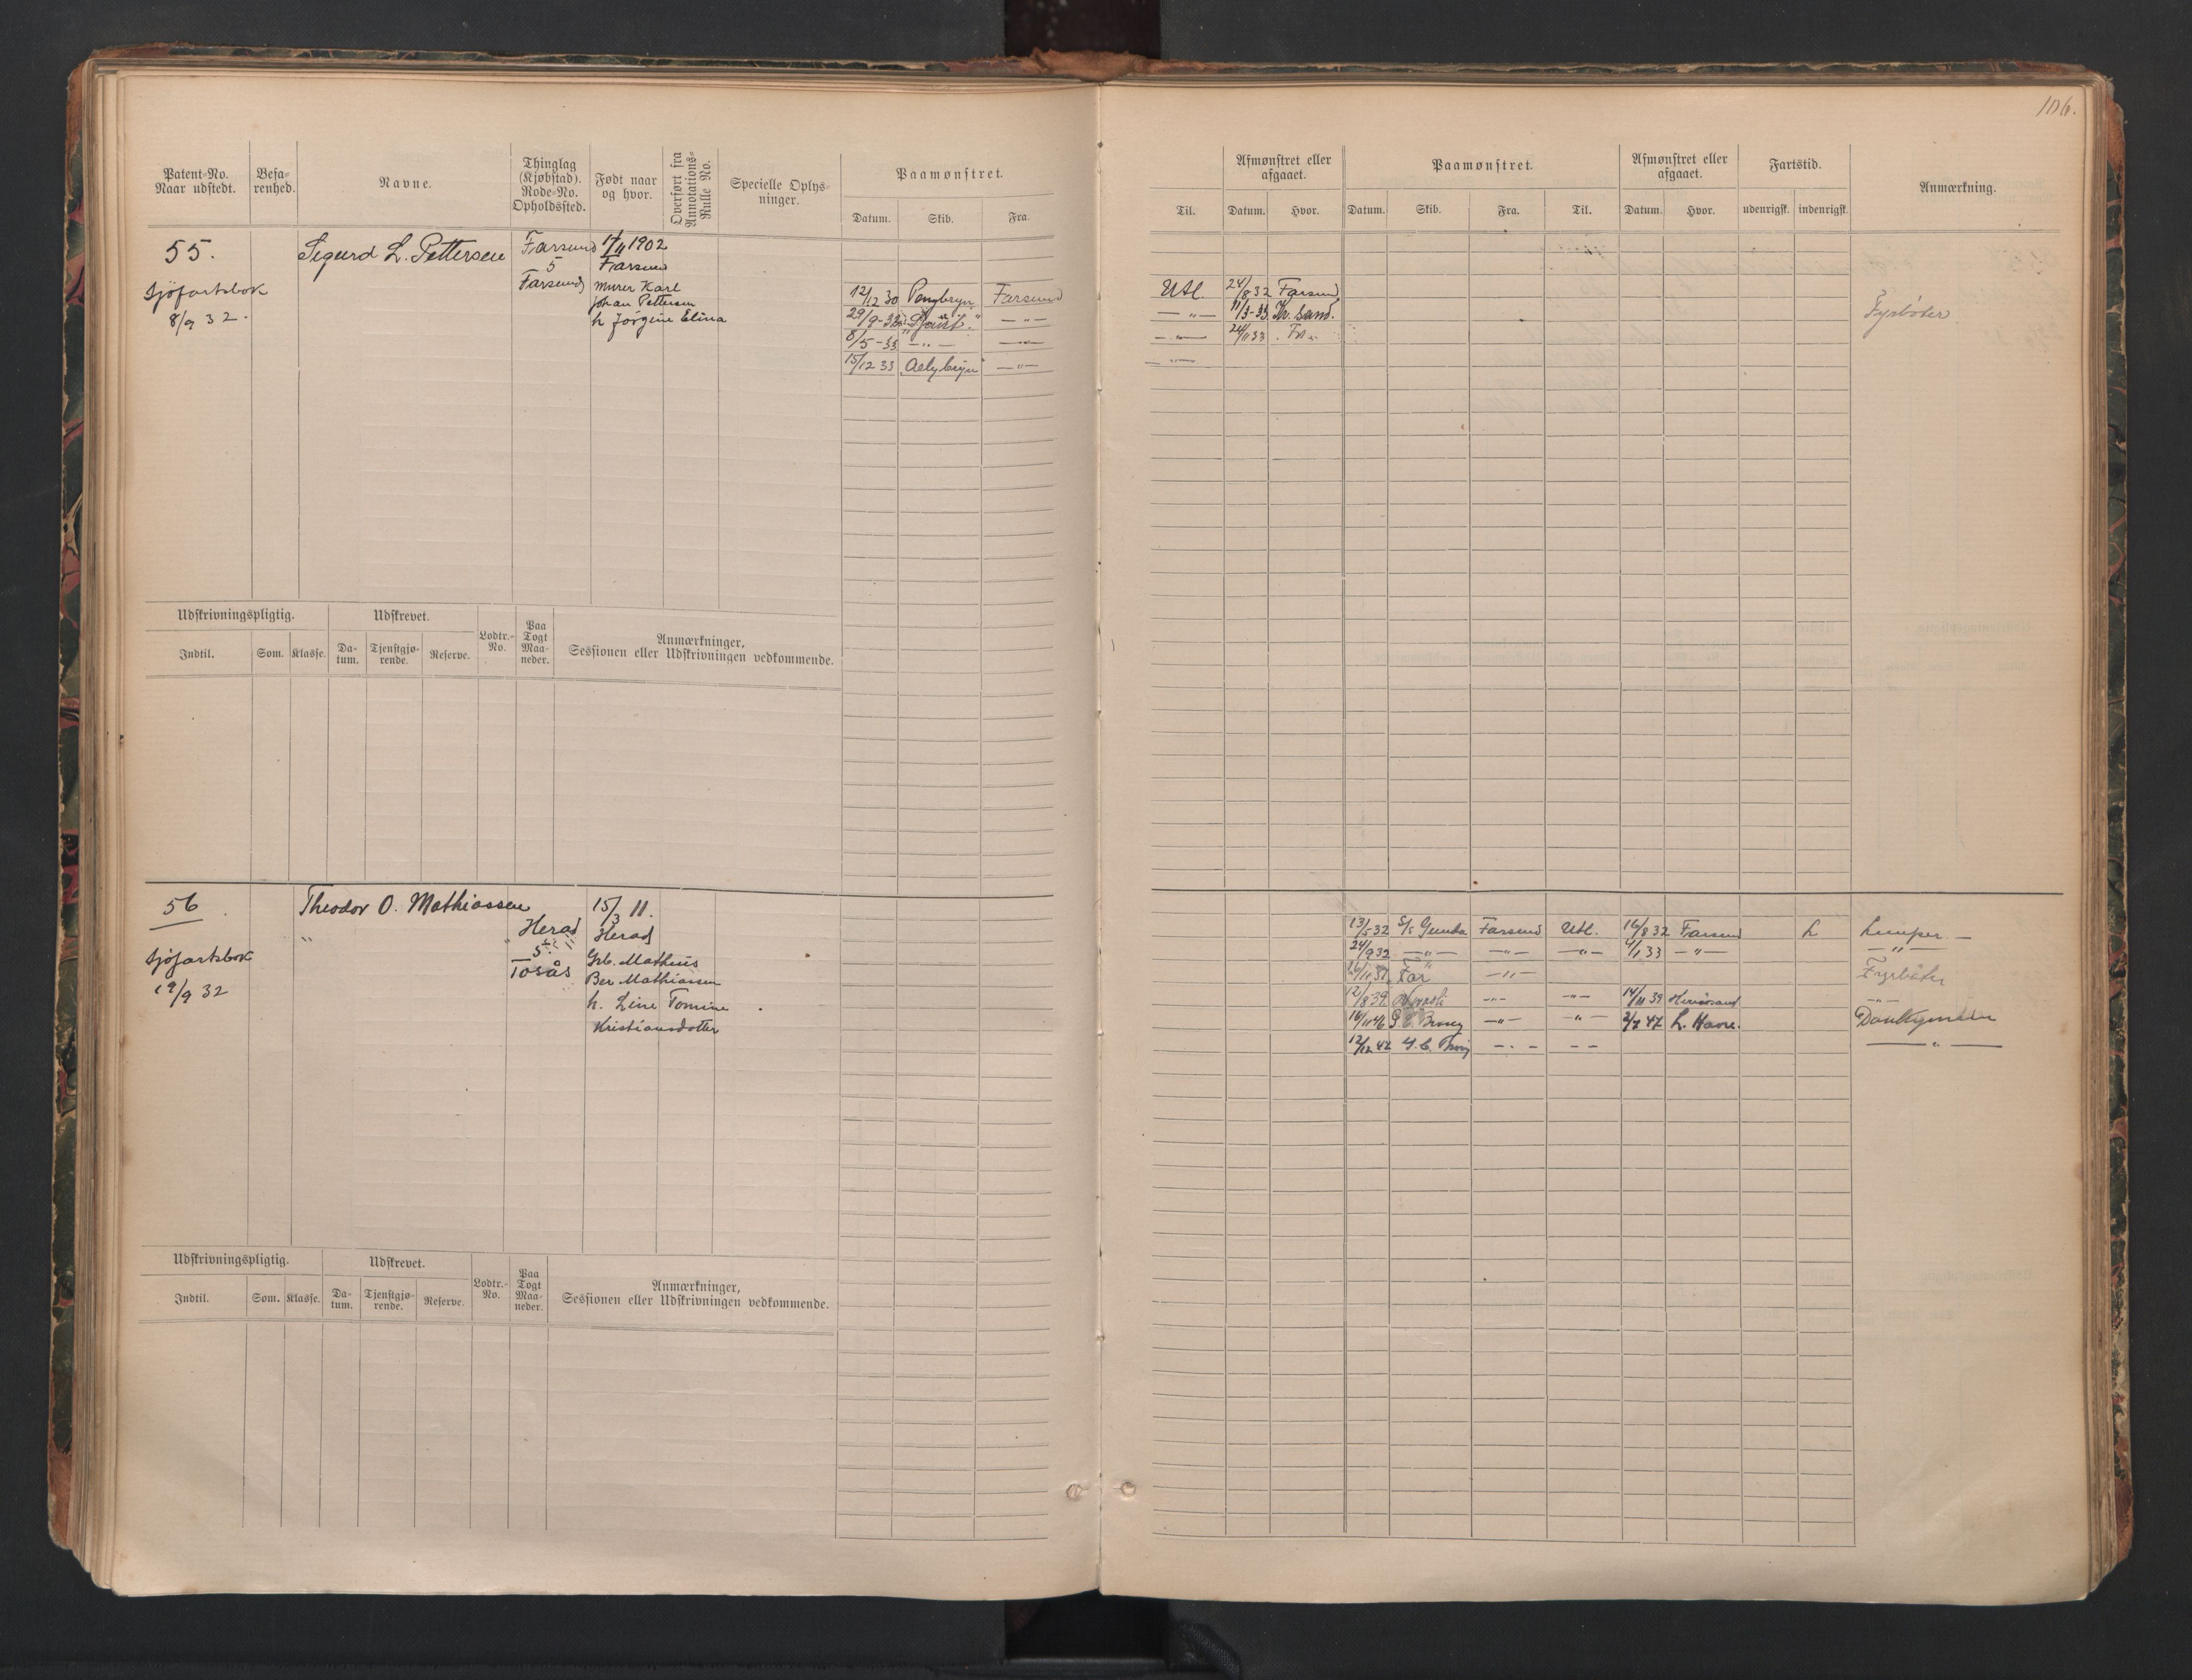 106.
Patent-No. Naar udstedt.
Befa-renhed.
Navne.
Thinglag (Kjøbstad). Rode-No. Opholdssted.
Født naar og hvor.
Overført fra Annotations-Rulle No.
Specielle Oplys-ninger.
Paamønstret.
Datum. Skib. Fra.
Til.
Afmønstret eller afgaaet.
Datum. Hvor.
Paamønstret.
Datum. Skib. Fra. Til.
Afmønstret eller afgaaet.
Datum. Hvor.
Fartstid.
udenrigsk. indenrigsk.
Anmærkning.
55. Sigurd L. Pettersen Farsund 17/11 1902
5 Farsund
Sjøfartsbok Farsund Murer Karl
8/9 32. Johan Pettersen
h Jørgine Elina
12/12 30 Farsund Utl. 24/8 32 Farsund
29/9-32 — " — — " — 11/3-33 Kr. Sand. Fyrbøter
8/5-33 — " — — " — — " — 24/11 33
15/12 33 — " — — " —
Udskrivningspligtig. Udskrevet. Lodtr.-No. Paa Togt Maa-neder. Anmærkninger, Sessionen eller Udskrivningen vedkommende.
Indtil. Som. Klasse. Da-tum. Tjenstgjø-rende. Reserve.
56 Theodor O. Mathiassen 15/3 11.
" Herad Herad
5
Sjøfartsbok Tosås Grb. Mathias
19/9 32 Ber Mathiassen
h. Line Tomine
Kristiansdotter
13/5-32 S/s Gunda Farsund Utl. 16/8 32 Farsund L Lemper —
24/9 32 — " — — " — — " — 4/1 33 — " — — " —
— " — Fyrbøter
12/8 39 — " — — " — 14/11 39 — " —
16/11 46 — " — — " — 2/7 47 L. Havre. Donkeymann
12/12 47 — " — — — — " —
Udskrivningspligtig. Udskrevet. Lodtr.-No. Paa Togt Maa-neder. Anmærkninger, Sessionen eller Udskrivningen vedkommende.
Indtil. Som. Klasse. Da-tum. Tjenstgjø-rende. Reserve.